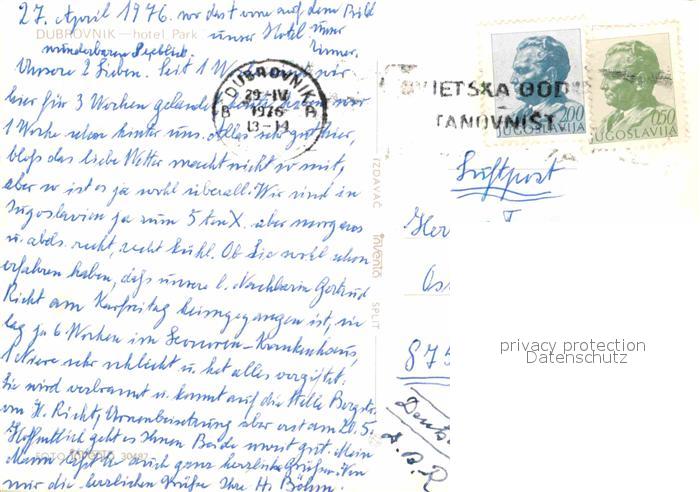 27. April 1976. vor dest vorn auf dem Bild
unser Hotel, unser
DUBROVNIK — hotel Park
wunderbaren Seeblick. Zimmer.
Unsere 2 Lieben. Seit 1 Woche sind wir
hier für 3 Wochen gelandet, haben nur
1 Woche schon hinter uns. Alles sehr gut hier,
bloß das liebe Wetter macht nicht so mit,
aber so ist es ja wohl überall. Wir sind in
Jugoslavien ja zum 5 ten X. aber morgens
u. abds. recht, recht kühl. Ob Sie wohl schon
erfahren haben, daß unsere l. Nachbarin Gertrud
Richt am Karfreitag heimgegangen ist, sie
lag ja 6 Wochen im Krankenhaus,
1 Niere sehr schlecht u. hat alles vergiftet.
Sie wird verbrannt u. kommt auf die Stelle
von H. Richt, Urnenbeisetzung aber erst am 20.5.
Hoffentlich geht es Ihnen Beide sonst gut. Mein
Mann läßt Sie auch ganz herzlich Grüßen. Von
mir die herzlichen Grüße Ihre H. Böhm.
FOTO 30487
IZDAVAČ invento SPLIT
DUBROVNIK A
29-IV
1976
13-14
B
SVJETSKA GOD
STANOVNIŠT
2,00
JUGOSLAVIJA
0,50
JUGOSLAVIJA
Luftpost
Her
875
Deuts
privacy protection
Datenschutz